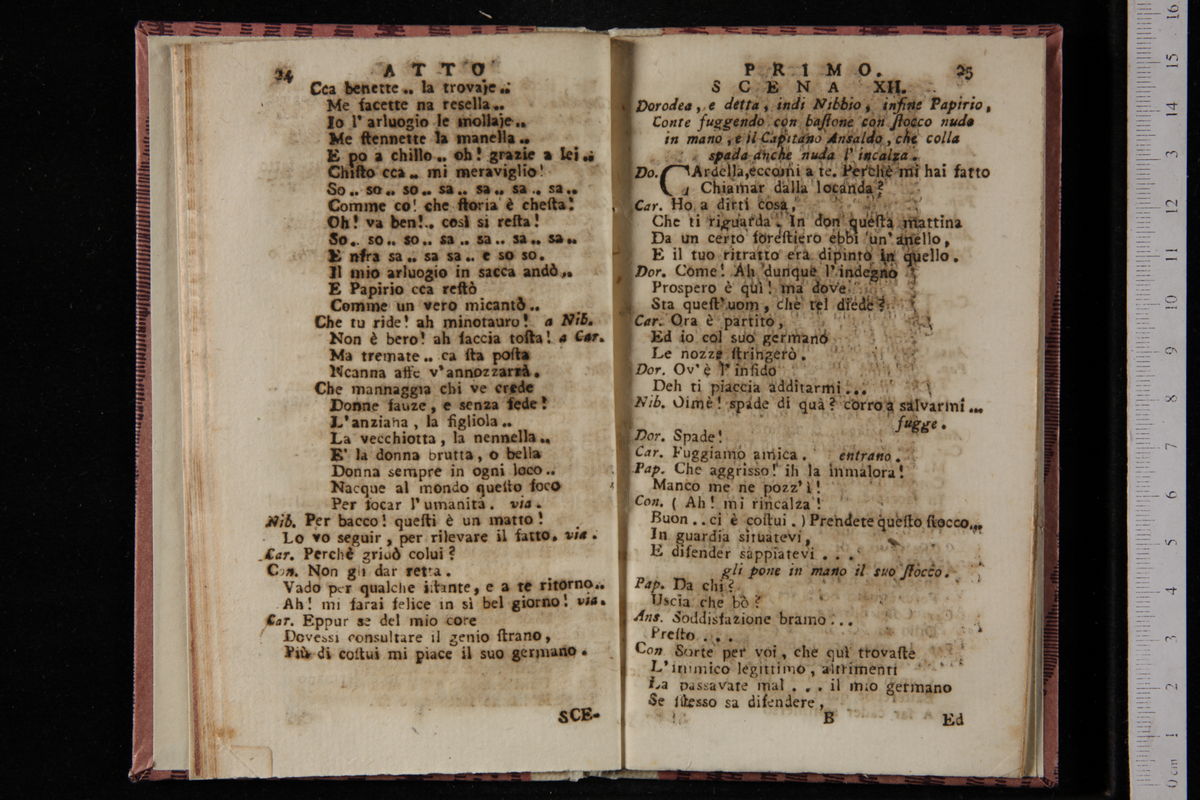 24 ATTO
Cca benette.. la trovaje..
Me facette na resella..
Io l' arluogio le mollaje..
Me ſtennette la manella..
E po a chillo.. oh! grazie a lei..
Chiſto cca.. mi meraviglio!
So.. so.. so.. sa.. sa.. sa.. sa..
Comme co! che ſtoria è cheſta!
Oh! va ben!.. così si reſta!
So.. so.. so.. sa.. sa.. sa.. sa..
E nfra sa.. sa sa.. e so so.
Il mio arluogio in sacca andò..
E Papirio cca reſtò
Comme un vero micantò..
Che tu ride! ah minotauro! a Nib.
Non è bero! ah faccia toſta! a Car.
Ma tremate.. ca ſta poſta
Ncanna affe v'annozzarrà.
Che mannaggia chi ve crede
Donne fauze, e senza fede!
L'anziana, la figliola..
La vecchiotta, la nennella..
E' la donna brutta, o bella
Donna sempre in ogni loco..
Nacque al mondo queſto foco
Per focar l'umanità. via.
Nib. Per bacco! queſti è un matto!
Lo vo seguir, per rilevare il fatto. via.
Car. Perchè gridò colui?
Con. Non gli dar retta.
Vado per qualche iſtante, e a te ritorno..
Ah! mi farai felice in sì bel giorno! via.
Car. Eppur se del mio core
Dovessi consultare il genio ſtrano,
Più di coſtui mi piace il suo germano.
SCE-
PRIMO. 25
SCENA XII.
Dorodea, e detta, indi Nibbio, infine Papirio,
Conte fuggendo con baſtone con ſtocco nudo
in mano, e il Capitano Ansaldo, che colla
spada anche nuda l'incalza.
Do. CArdella, eccomi a te. Perchè mi hai fatto
Chiamar dalla locanda?
Car. Ho a dirti cosa,
Che ti riguarda. In don queſta mattina
Da un certo foreſtiero ebbi un'anello,
E il tuo ritratto era dipinto in quello.
Dor. Come! Ah dunque l'indegno
Prospero è quì! ma dove
Sta queſt'uom, che tel diede?
Car. Ora è partito,
Ed io col suo germano
Le nozze ſtringerò.
Dor. Ov'è l'infido
Deh ti piaccia additarmi...
Nib. Oimè! spade di quà? corro a salvarmi...
fugge.
Dor. Spade!
Car. Fuggiamo amica. entrano.
Pap. Che aggrisso! ih la inmalora!
Manco me ne pozz'ì!
Con. ( Ah! mi rincalza!
Buon.. ci è coſtui.) Prendete queſto ſtocco...
In guardia situatevi,
E difender sappiatevi...
gli pone in mano il suo ſtocco.
Pap. Da chi?
Uscia che bò?
Ans. Soddisfazione bramo...
Preſto...
Con Sorte per voi, che quì trovaſte
L'inimico legittimo, altrimenti
La passavate mal... il mio germano
Se ſtesso sa difendere,
B Ed